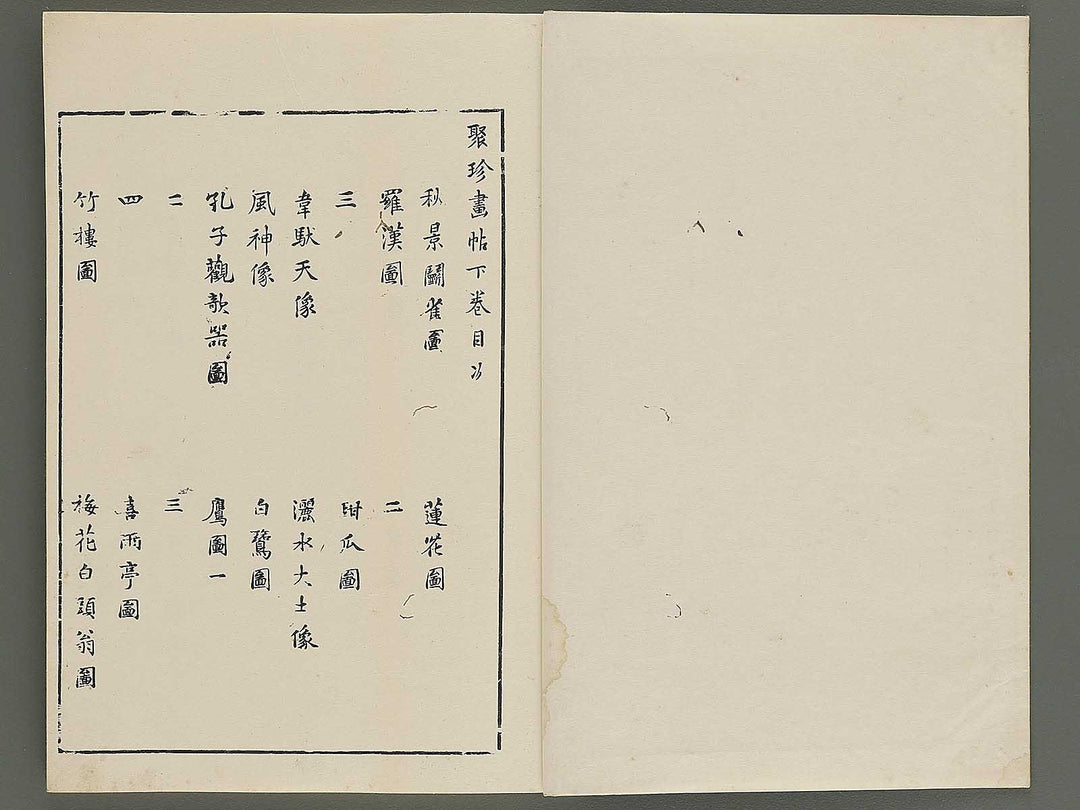 聚珍畫帖下卷目次
秋景鬭雀圖
蓮花圖
羅漢圖
二
三
甜瓜圖
韋馱天像
灑水大士像
風神像
白鷺圖
孔子觀欹器圖
鷹圖一
二
三
四
喜雨亭圖
竹樓圖
梅花白頭翁圖